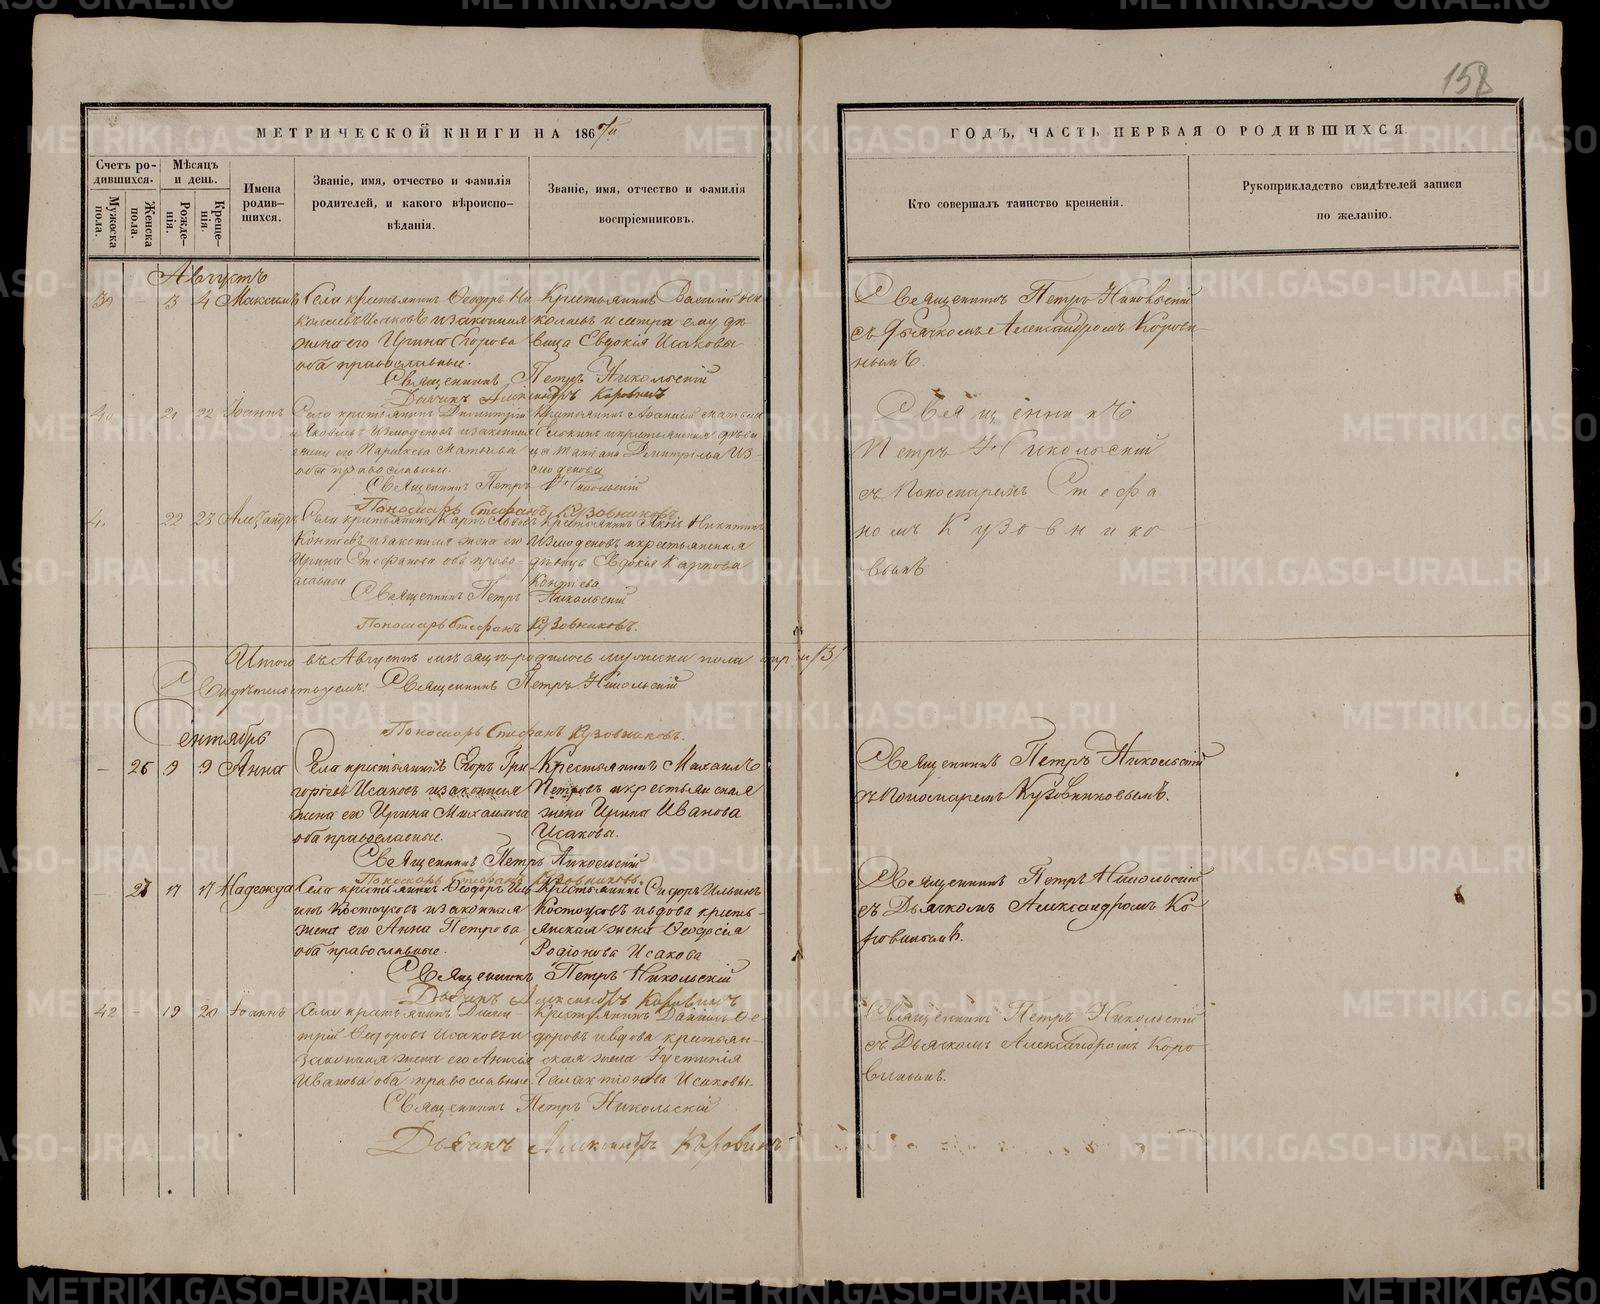 158
МЕТРИЧЕСКОЙ КНИГИ НА 1867й
ГОДЪ, ЧАСТЬ ПЕРВАЯ О РОДИВШИХСЯ.
Счетъ родившихся.
Мужеска пола.
Женска пола.
Мѣсяцъ и день.
Рожденія.
Крещенія.
Имена родившихся.
Званіе, имя, отчество и фамилія
родителей, и какого вѣроиспо-
вѣданія.
Званіе, имя, отчество и фамилія
воспріемниковъ.
Кто совершалъ таинство крещенія.
Рукоприкладство свидѣтелей записи
по желанію.
Августъ
39 – 3 4 Максимъ
Села крестьянинъ Ѳеодоръ Ни
колаевъ Исаковъ и законная
жена его Ирина Егорова
оба православные.
Крестьянинъ Василій Ни
колаевъ и сестра ему дѣ-
вица Евдокія Исаковы
Священникъ Петръ Никольскій
Дьячекъ Александръ Коровинъ
Священникъ Петръ Никольскій
съ Дьячкомъ Александромъ Корови-
нымъ.
40 – 21 22 Іоаннъ
Села крестьянинъ Димитрій
Яковлевъ Измоденовъ и законная
жена его Параскева Матвѣева
оба православные.
ца Татіана Димитріева Из-
моденова
Священникъ Петръ Никольскій
Пономарь Стефанъ Кузовниковъ.
Священникъ
Петръ Никольскій
съ Пономаремъ Стефа
номъ Кузовнико
вымъ
41 22 23 Александръ
Села крестьянинъ Карпъ
Контіевъ и законная жена его
Ирина Стефанова оба право-
славные
Крестьянинъ Никитинъ
Измоденовъ и крестьянская
дѣвица Евдокія Карпова
Контіева
Священникъ Петръ Никольскій
Пономарь Стефанъ Кузовниковъ.
Итого въ Августѣ мѣсяцѣ родилось мужеска пола три /3/
Свидѣтельствуемъ: Священникъ Петръ Никольскій
Пономарь Стефанъ Кузовниковъ.
Сентябрь
– 26 9 9 Анна
Села крестьянинъ Егоръ Гри-
горьевъ Исаковъ и законная
жена его Ирина Михаилова
оба православные.
Крестьянинъ Михаилъ
Петровъ и крестьянская
жена Ирина Иванова
Исаковы.
Священникъ Петръ Никольскій
Пономарь Стефанъ Кузовниковъ.
Священникъ Петръ Никольскій
съ Пономаремъ Кузовниковымъ.
27 17 17 Надежда
Села крестьянинъ Ѳеодоръ Иль
инъ Костоусовъ и законная
жена его Анна Петрова
оба православные.
Крестьянинъ Сидоръ Ильинъ
Костоусовъ и вдова кресть-
янская жена Ѳеодосія
Родіонова Исакова
Священникъ Петръ Никольскій
Дьячекъ Александръ Коровинъ
Священникъ Петръ Никольскій
съ Дьячкомъ Александромъ Ко
ровинымъ.
42 – 19 20 Іоаннъ
Села крестьянинъ Дими-
трій Ѳедоровъ Исаковъ и
законная жена его Анисія
Иванова оба православные.
Крестьянинъ Даніилъ Ѳе-
доровъ и вдова крестьян-
ская жена Іустинія
Галактіонова Исаковы.
Священникъ Петръ Никольскій
Дьячекъ Александръ Коровинъ
Священникъ Петръ Никольскій
съ Дьячкомъ Александромъ Коро
винымъ.
METRIKI.GASO-URAL.RU